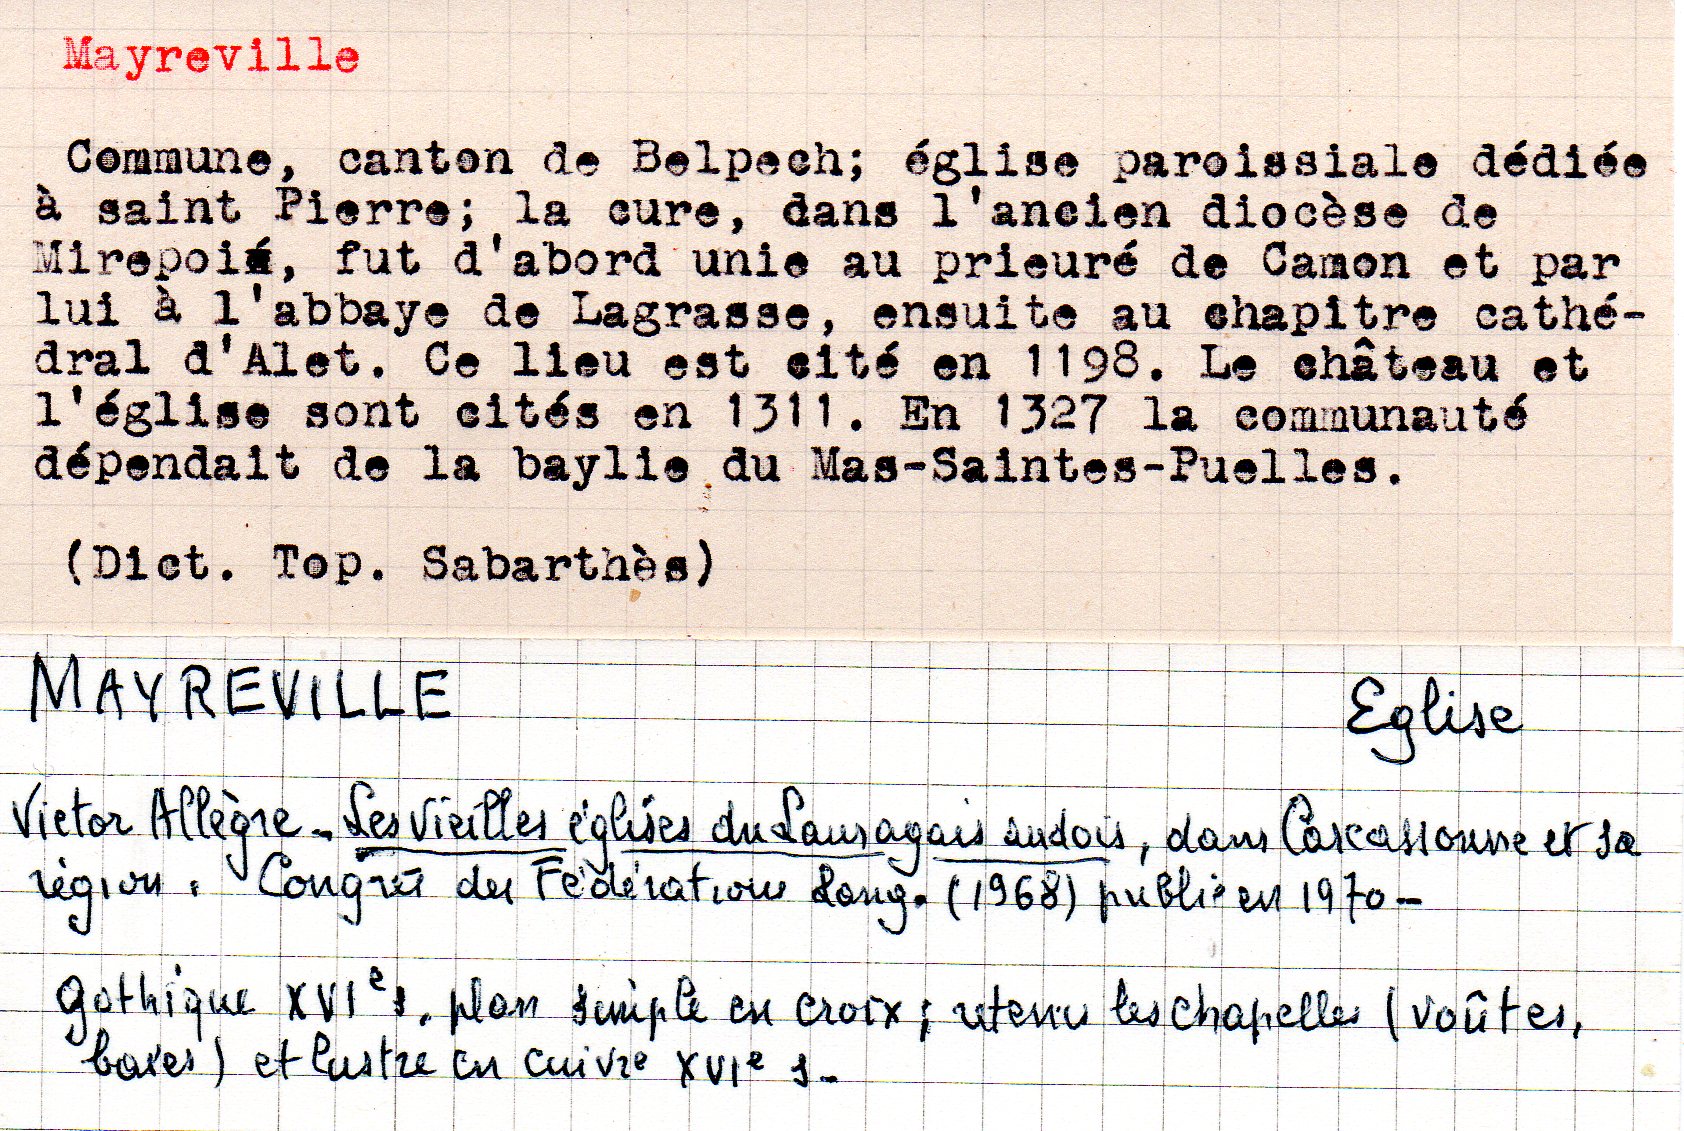 Mayreville
Commune, canton de Belpech; église paroissiale dédiée
à saint Pierre; la cure, dans l'ancien diocèse de
Mirepoix, fut d'abord unie au prieuré de Camon et par
lui à l'abbaye de Lagrasse, ensuite au chapitre cathé-
dral d'Alet. Ce lieu est cité en 1198. Le château et
l'église sont cités en 1311. En 1327 la communauté
dépendait de la baylie du Mas-Saintes-Puelles.
(Dict. Top. Sabarthès)
MAYREVILLE Eglise
Victor Allègre - Les vieilles églises du Lauragais audois, dans Carcassonne et sa
région. Congrès des Fédérations Lang. (1968) publié en 1970 -
Gothique XVIe s, plan simple en croix; retenu les chapelles (voûtes,
baies) et lustre en cuivre XVIe s -